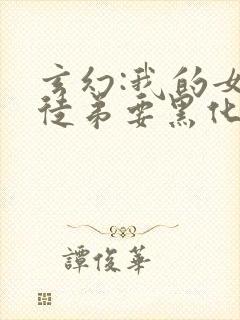 玄幻:我的女
徒弟要黑化
譚俊華